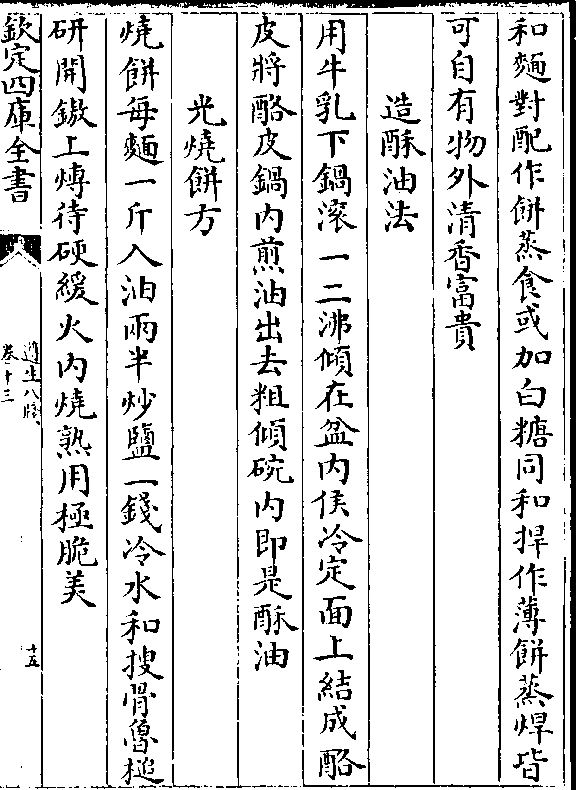 和麵對配作餅蒸食或加白糖同和捍作薄餅蒸焊皆
可自有物外清香富貴
造酥油法
用牛乳下鍋滚一二沸傾在盆内侯冷定面上結成酪
皮將酪皮鍋内煎油出去粗傾碗内即是酥油
光燒餅方
燒餅每麵一斤入油兩半炒鹽一錢冷水和搜骨魯槌
研開鏊上煿待硬緩火内燒熟用極脆美
欽定四庫全書
遵生八牋
卷十三
十五